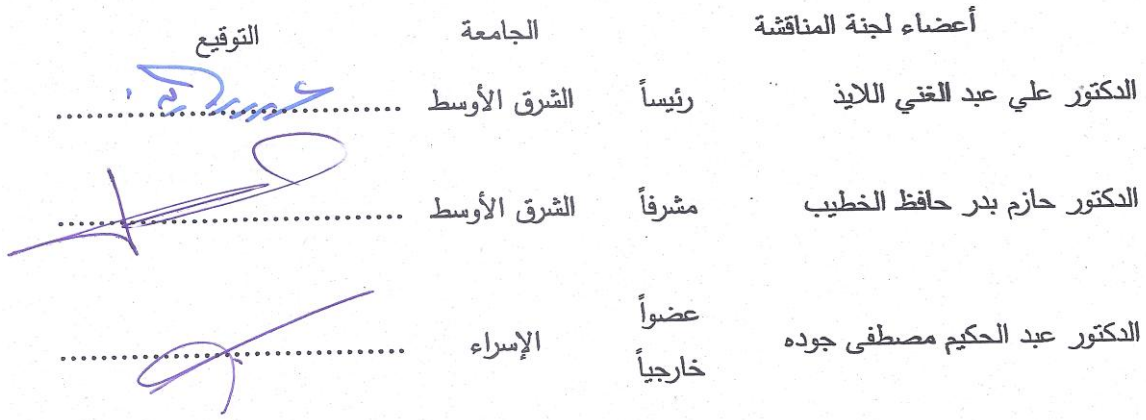 أعضاء لجنة المناقشة الجامعة التوقيع
الدكتور علي عبد الغني اللايذ رئيساً الشرق الأوسط ........................................
الدكتور حازم بدر حافظ الخطيب مشرفاً الشرق الأوسط ........................................
الدكتور عبد الحكيم مصطفى جوده عضواً خارجياً الإسراء ........................................